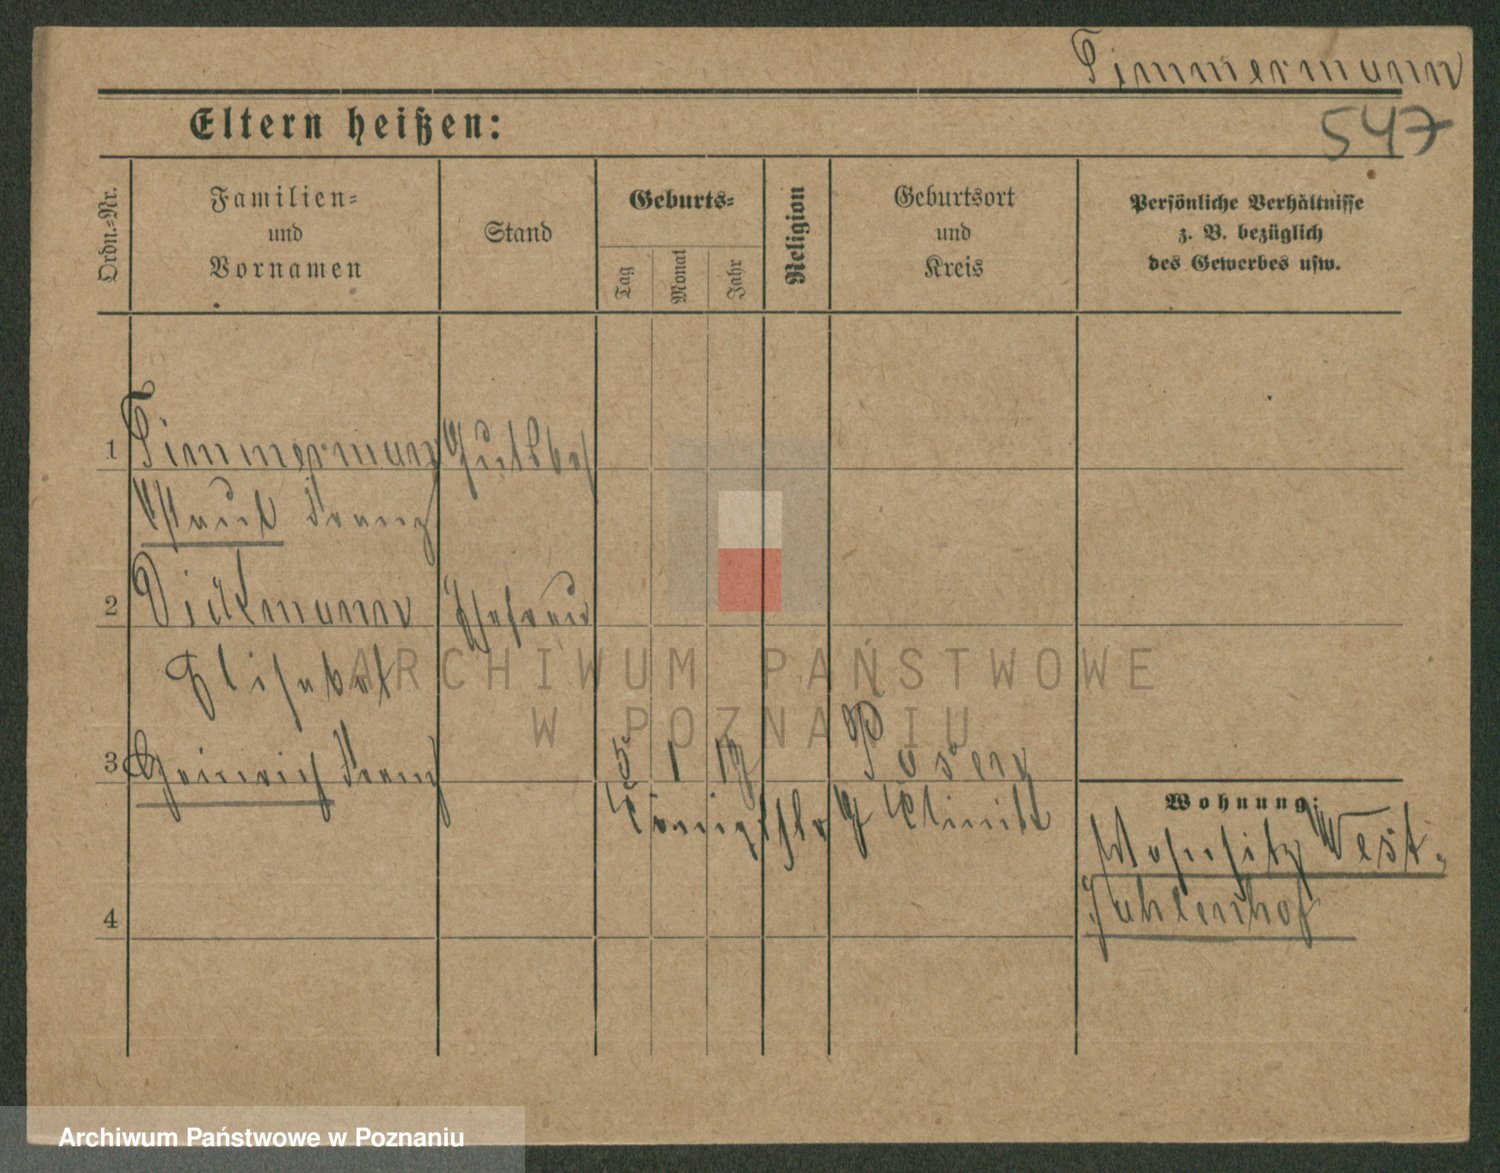 Timmermann
547
Eltern heißen:
Ordn.-Nr.
Familien-
und
Vornamen
Stand
Geburts-
Tag
Monat
Jahr
Religion
Geburtsort
und
Kreis
Persönliche Verhältnisse
z. B. bezüglich
des Gewerbes usw.
1 Timmermann Gutsbes
Paul Franz
2 Dickmann Ehefrau
Elisabet
3 Heinrich Franz 5 1 17 Posen
Klinik
Wohnung:
Wohnsitz West-
Juhlenhof
4
ARCHIWUM PAŃSTWOWE
W POZNANIU
Archiwum Państwowe w Poznaniu